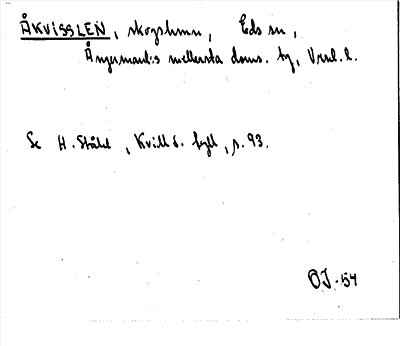 ÅKVISSLEN, skogshemn, Eds sn,
Ångermanl:s mellersta doms. by, Vrnl. l.
Se H. Ståhl, Kvill o. fyll, s. 93.
OJ -54